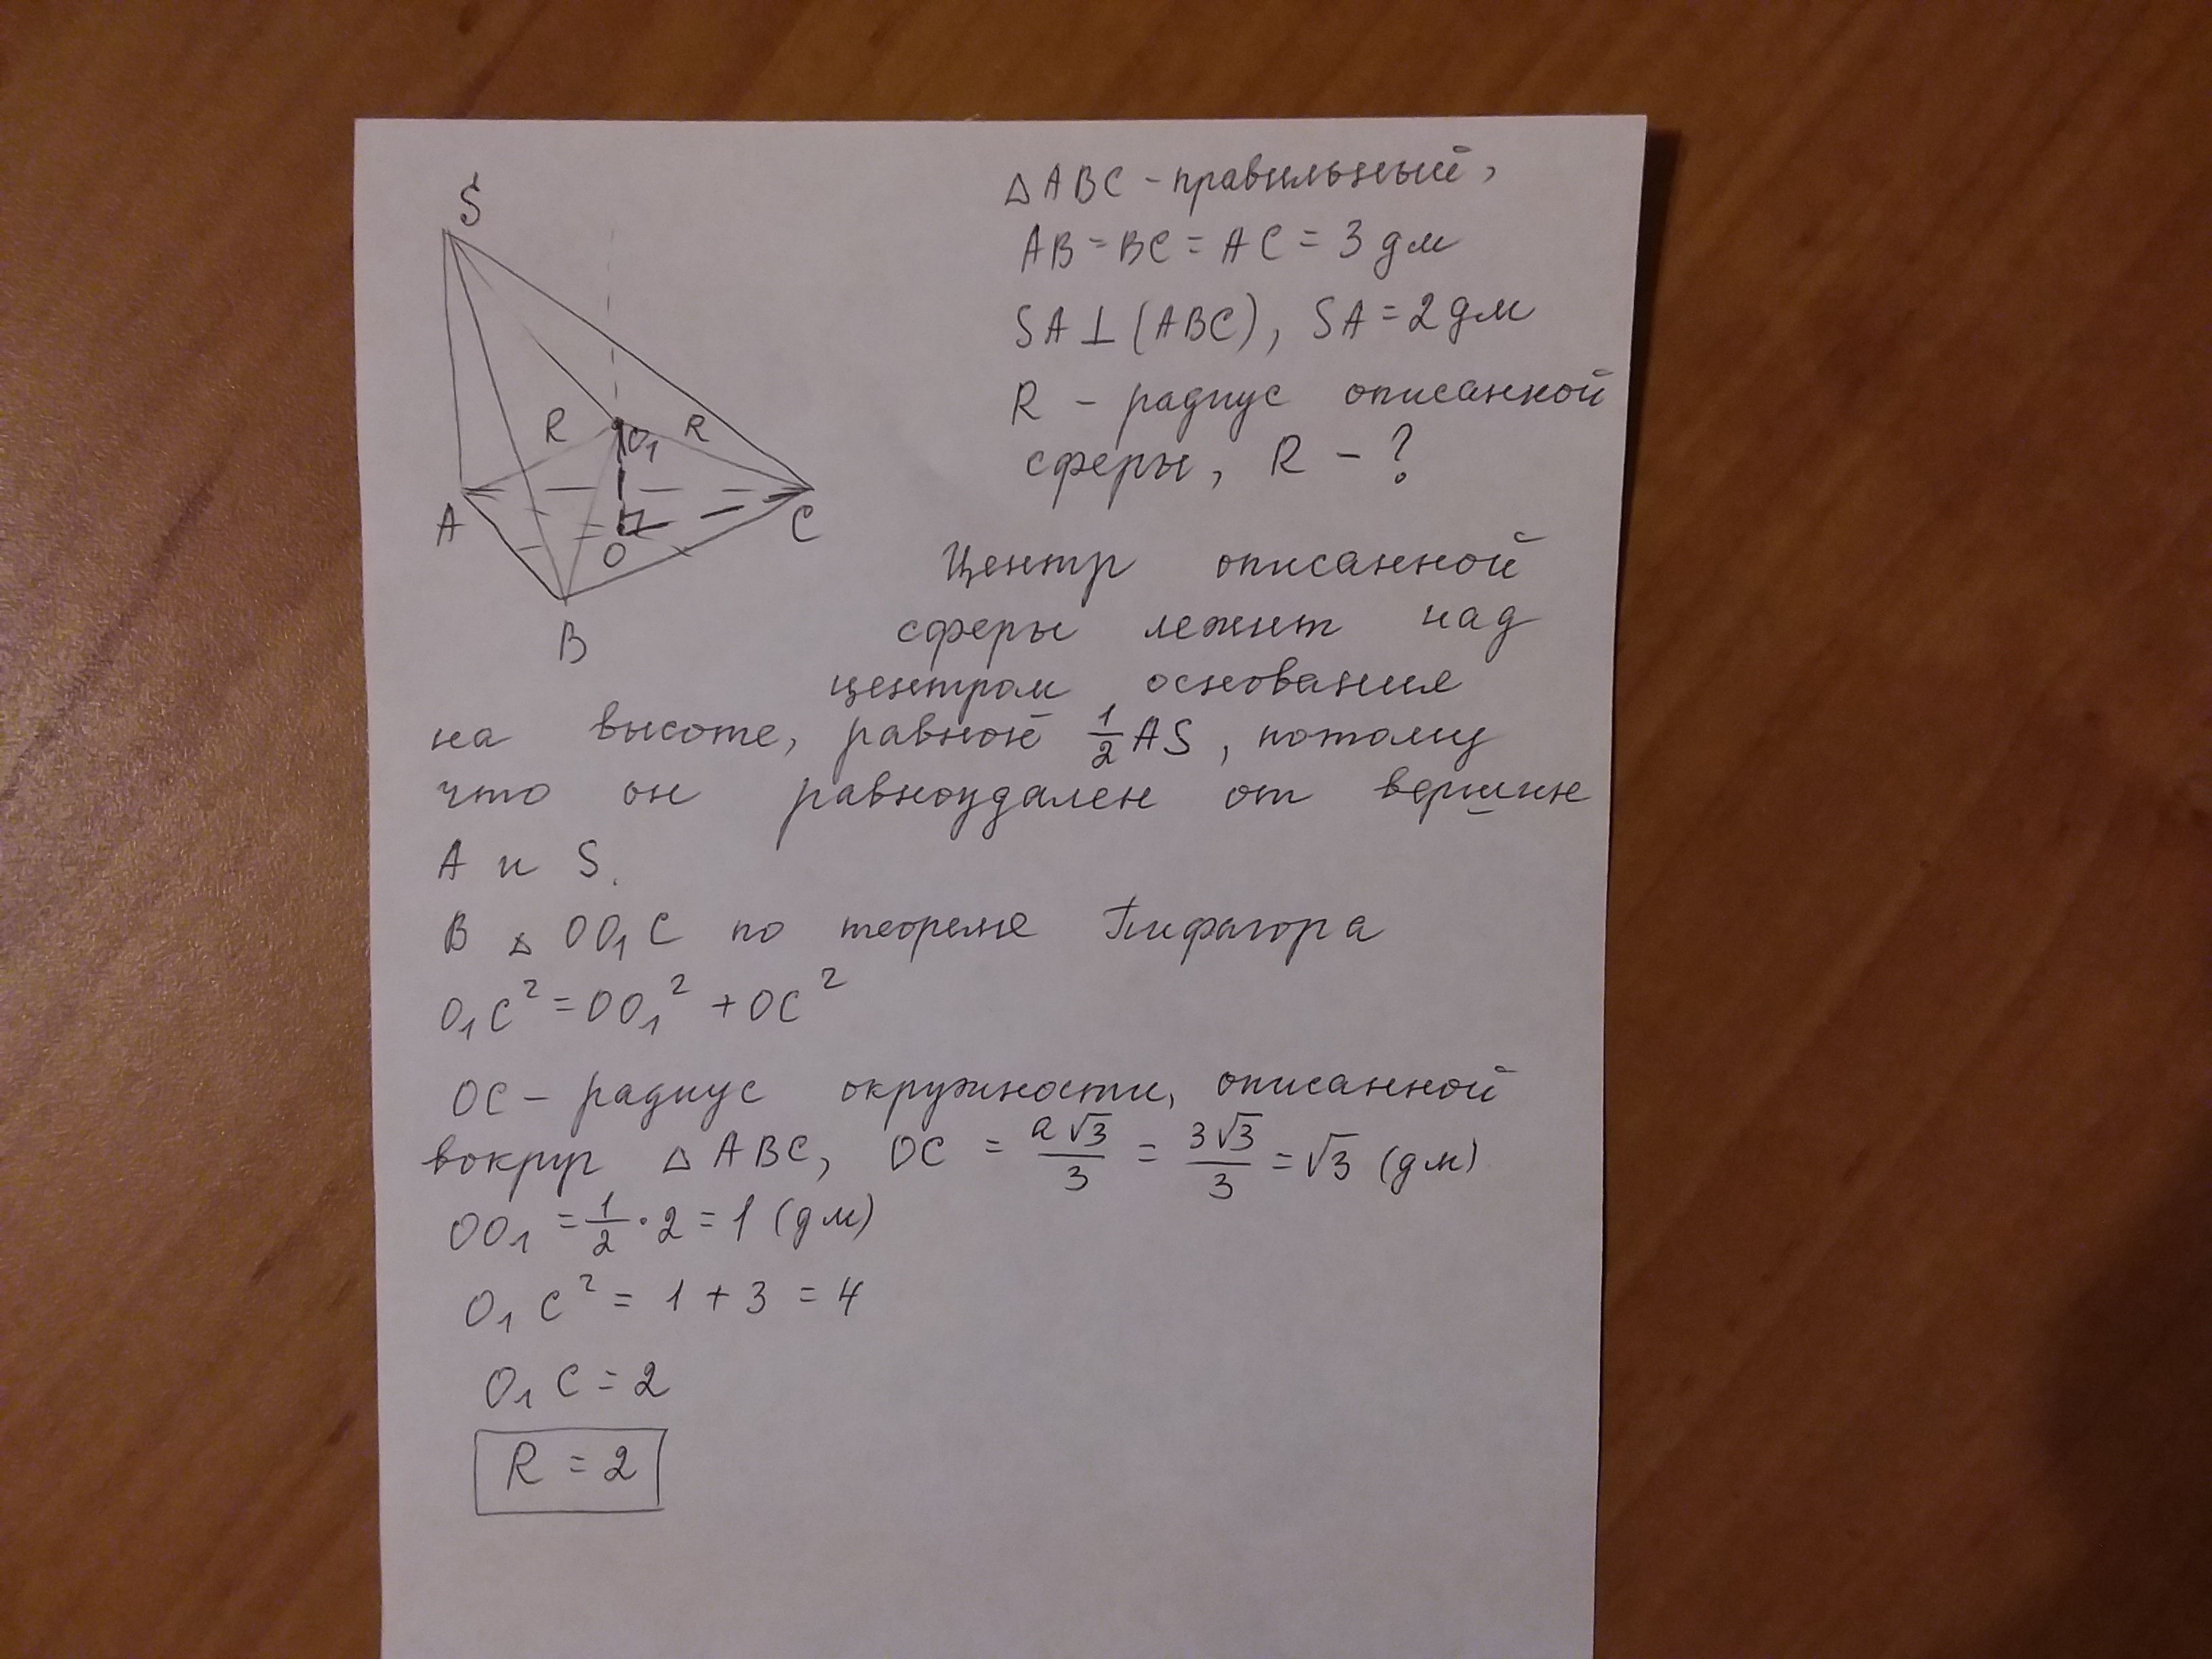 S
R
R
O₁
A
O
C
B
△ ABC - правильный,
AB = BC = AC = 3 дм
SA ⊥ (ABC), SA = 2 дм
R - радиус описанной
сферы, R - ?
Центр описанной
сферы лежит над
центром основания
на высоте, равной 1/2 AS, потому
что он равноудален от вершин
A и S.
В △ OO₁C по теореме Пифагора
O₁C² = OO₁² + OC²
OC - радиус окружности, описанной
вокруг △ ABC, OC = a√3/3 = 3√3/3 = √3 (дм)
OO₁ = 1/2 · 2 = 1 (дм)
O₁C² = 1 + 3 = 4
O₁C = 2
R = 2